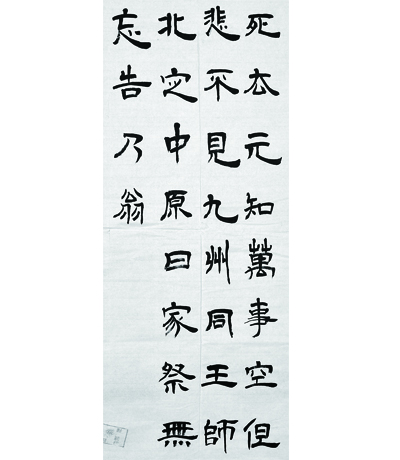 死去元知萬事空但
悲不見九州同王師
北定中原日家祭無
忘告乃翁